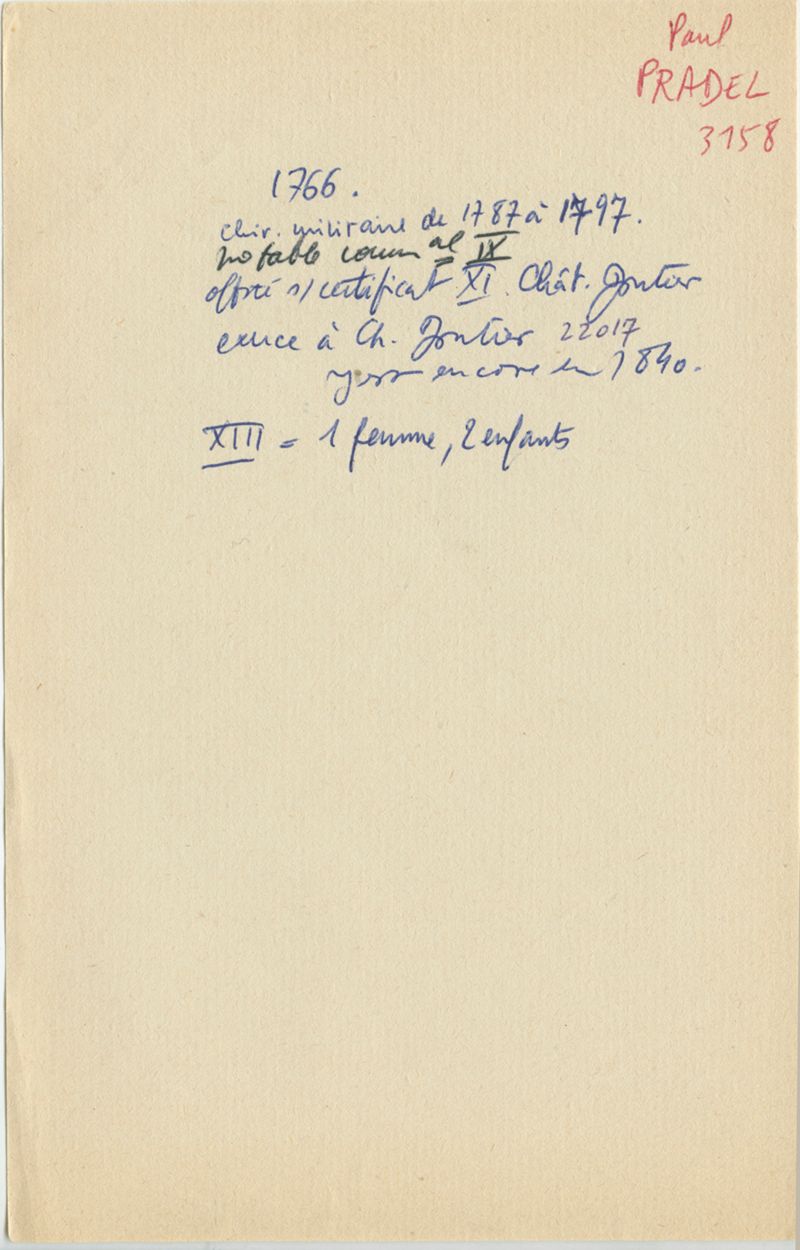 Paul
PRADEL
3158
1766.
chir. militaire de 1787 à 1797.
notable commal IX
s/certificat XI. Chât. Gontier
exerce à Ch. Gontier 22017
y est encore en 1840.
XIII = 1 femme, 2 enfants